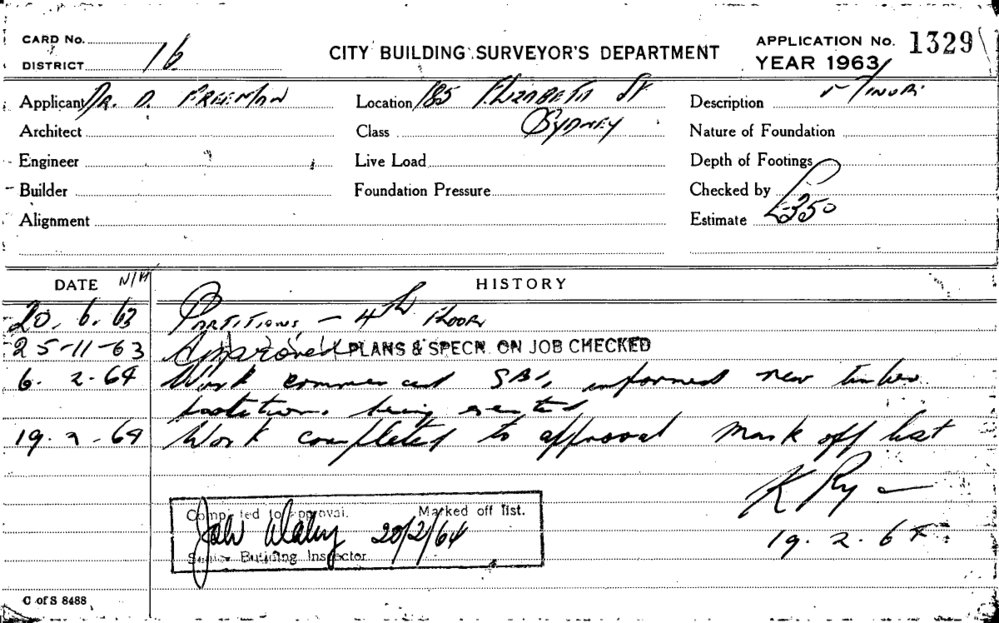 CARD No.
DISTRICT 16
CITY BUILDING SURVEYOR'S DEPARTMENT
APPLICATION No. 1329
YEAR 1963
Applicant DR. D. FREEMAN
Location 185 ELIZABETH ST
Description MINOR
Architect
Class SYDNEY
Nature of Foundation
Engineer
Live Load
Depth of Footings
Builder
Foundation Pressure
Checked by
Alignment
Estimate £350
DATE N/H HISTORY
20.6.63 PARTITIONS - 4TH FLOOR
25-11-63 Approved PLANS & SPECN. ON JOB CHECKED
6.2-64 Work commenced informed new timber
partitions being erected
19.2-64 Work completed to approval mark off list
K Ryan
19.2.64
Completed to approval. Marked off list.
20/2/64
Senior Building Inspector
C of S 8488